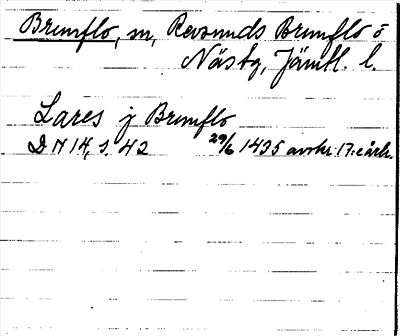 Brunflo, sn, Revsunds Brunflo o
Näs tg, Jämtl. l.
Lares j Brunflo
D N 14, s. 42 29/6 1435 avskr. 17:e årh.